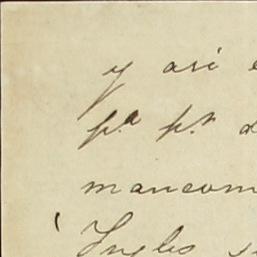 y asi
pª pr
mancom
Ingles